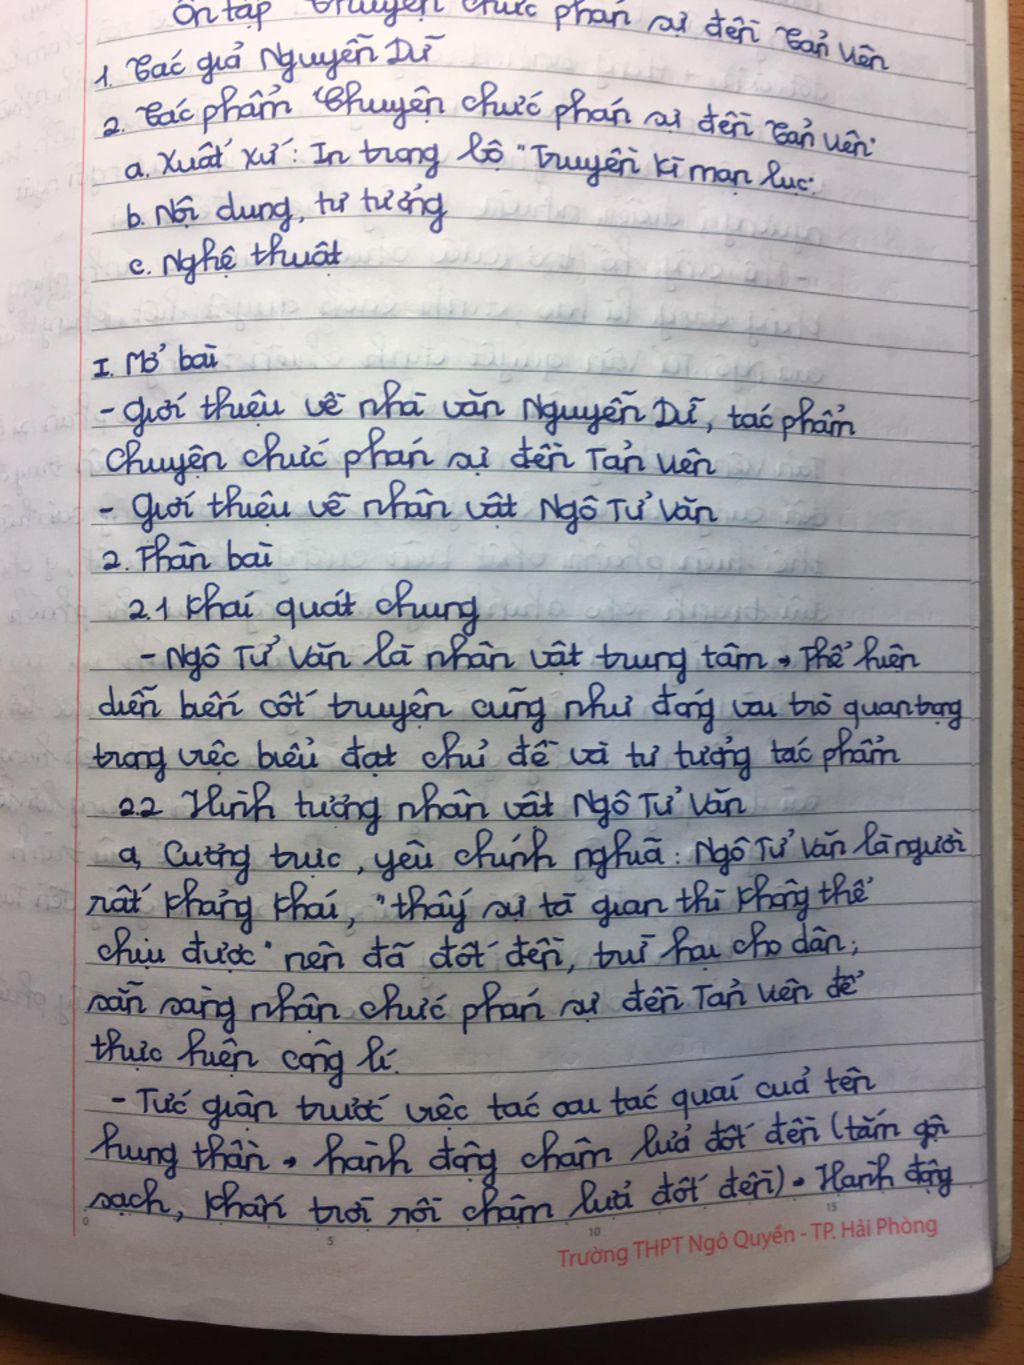 Ôn tập Chuyện chức phán sự đền Tản Viên
1. Tác giả Nguyễn Dữ
2. Tác phẩm "Chuyện chức phán sự đền Tản Viên"
a. Xuất xứ: In trong bộ "Truyền kì mạn lục"
b. Nội dung, tư tưởng
c. Nghệ thuật
I. Mở bài
- Giới thiệu về nhà văn Nguyễn Dữ, tác phẩm
Chuyện chức phán sự đền Tản Viên
- Giới thiệu về nhân vật Ngô Tử Văn
2. Thân bài
2.1 Khái quát chung
- Ngô Tử Văn là nhân vật trung tâm → Thể hiện
diễn biến cốt truyện cũng như đóng vai trò quan trọng
trong việc biểu đạt chủ đề và tư tưởng tác phẩm
2.2 Hình tượng nhân vật Ngô Tử Văn
a, Cương trực, yêu chính nghĩa: Ngô Tử Văn là người
rất khảng khái, "thấy sự tà gian thì không thể
chịu được" nên đã đốt đền, trừ hại cho dân;
sẵn sàng nhận chức phán sự đền Tản Viên để
thực hiện công lí.
- Tức giận trước việc tác oai tác quái của tên
hung thần → hành động châm lửa đốt đền (tắm gội
sạch, khấn trời rồi châm lửa đốt đền) → Hành động
0 5 10 15
Trường THPT Ngô Quyền - TP. Hải Phòng